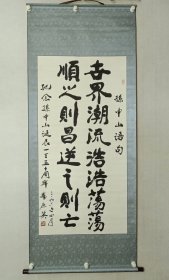 孫中山語句
世界潮流浩浩蕩蕩
順之則昌逆之則亡
紀念孫中山誕辰一百五十周年